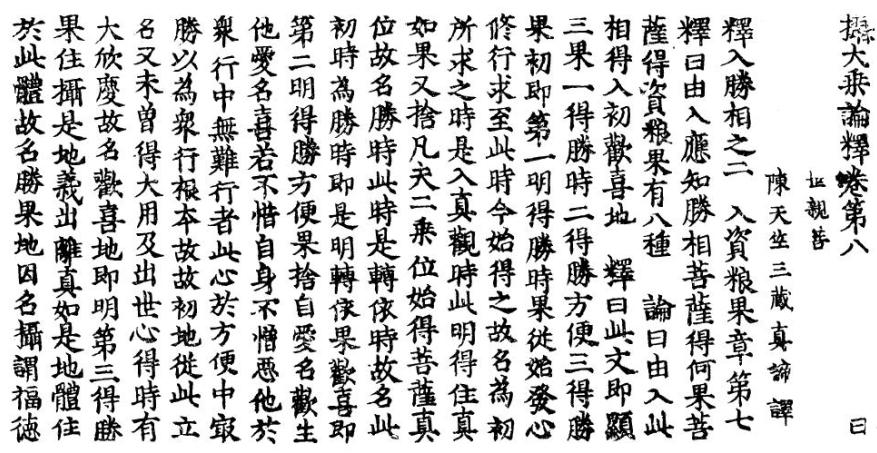 攝大乘論釋卷第八 曰
世親菩
陳天竺三藏真諦譯
釋入勝相之二 入資粮果章第七
釋曰由入應知勝相菩薩得何果菩
薩得資粮果有八種 論曰由入此
相得入初歡喜地 釋曰此文即顯
三果一得勝時二得勝方便三得勝
果初即第一明得勝時果從始發心
修行求至此時今始得之故名為初
所求之時是入真觀時此明得住真
如果又捨凡夫二乘位始得菩薩真
位故名勝時此時是轉依時故名此
初時為勝時即是明轉依果歡喜即
第二明得勝方便果捨自愛名歡生
他愛名喜若不惜自身不憎惡他於
衆行中無難行者此心於方便中㝡
勝以為衆行根本故故初地從此立
名又未曽得大用及出世心得時有
大欣慶故名歡喜地即明第三得勝
果住攝是地義出離真如是地體住
於此體故名勝果地因名攝謂福徳